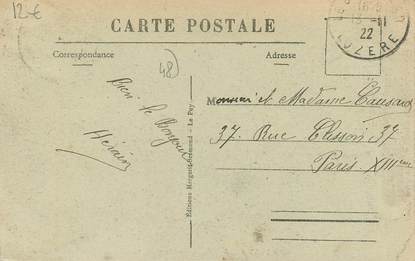 12€
CARTE POSTALE
Correspondance
Adresse
48
22
LOZERE
Bien le Bonjour
Monsieur et Madame
37. Rue Clisson 37
Paris XIIIeme
Editions Margerit-Brémond - Le Puy